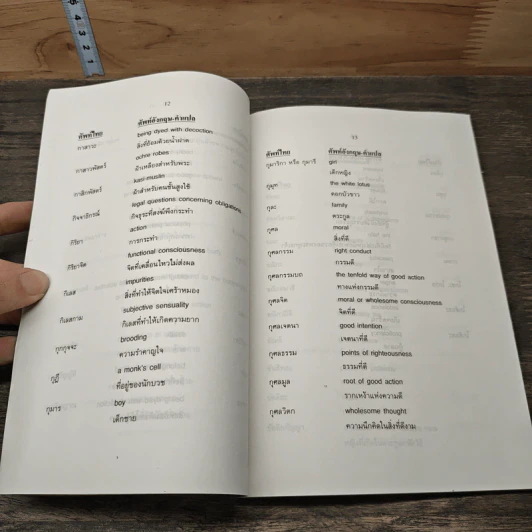 12
ศัพท์ไทย ศัพท์อังกฤษ-คำแปล
กาสาวะ being dyed with decoction
สิ่งที่ย้อมด้วยน้ำฝาด
กาสาวพัสตร์ ochre robes
ผ้าเหลืองสำหรับพระ
กาสิกพัสตร์ kasi-muslin
ผ้าสำหรับคนชั้นสูงใช้
กิจจาธิกรณ์ legal questions concerning obligations
กิจธุระที่สงฆ์พึงกระทำ
กิริยา action
การกระทำ
กิริยาจิต functional consciousness
จิตที่เคลื่อนไหวไม่ส่งผล
กิเลส impurities
สิ่งที่ทำให้จิตใจเศร้าหมอง
กิเลสกาม subjective sensuality
กิเลสที่ทำให้เกิดความอยาก
กุกกุจจะ brooding
ความรำคาญใจ
กุฎี a monk's cell
ที่อยู่ของนักบวช
กุมาร boy
เด็กชาย
13
ศัพท์ไทย ศัพท์อังกฤษ-คำแปล
กุมาริกา หรือ กุมารี girl
เด็กหญิง
กุมุท the white lotus
ดอกบัวขาว
กุละ family
ตระกูล
กุศล moral
สิ่งที่ดี
กุศลกรรม right conduct
กรรมดี
กุศลกรรมบถ the tenfold way of good action
ทางแห่งกรรมดี
กุศลจิต moral or wholesome consciousness
จิตที่ดี
กุศลเจตนา good intention
เจตนาที่ดี
กุศลธรรม points of righteousness
ธรรมที่ดี
กุศลมูล root of good action
รากเหง้าแห่งความดี
กุศลวิตก wholesome thought
ความนึกคิดในสิ่งที่ดีงาม
1
2
3
4